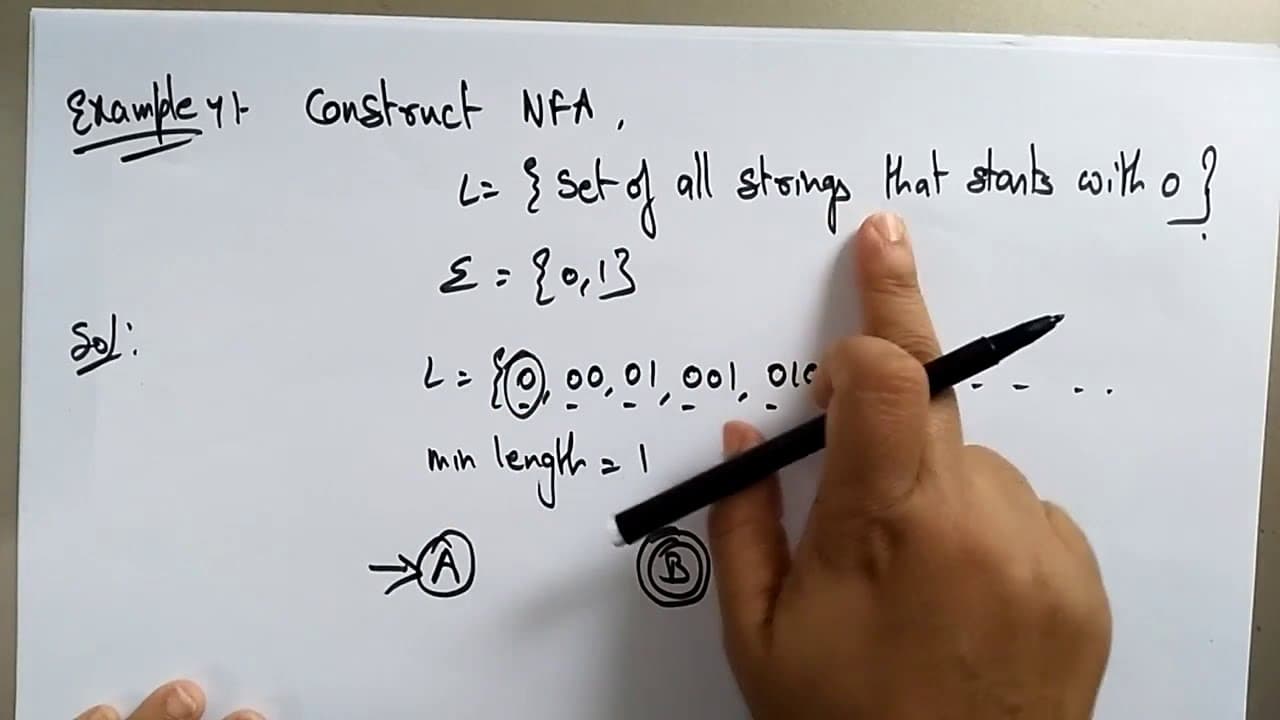 Example 4:- Construct NFA,
L = {set of all strings that starts with 0}
Σ = {0,1}
Sol:
L = {0, 00, 01, 001, 010 - - . .
min length = 1
A B